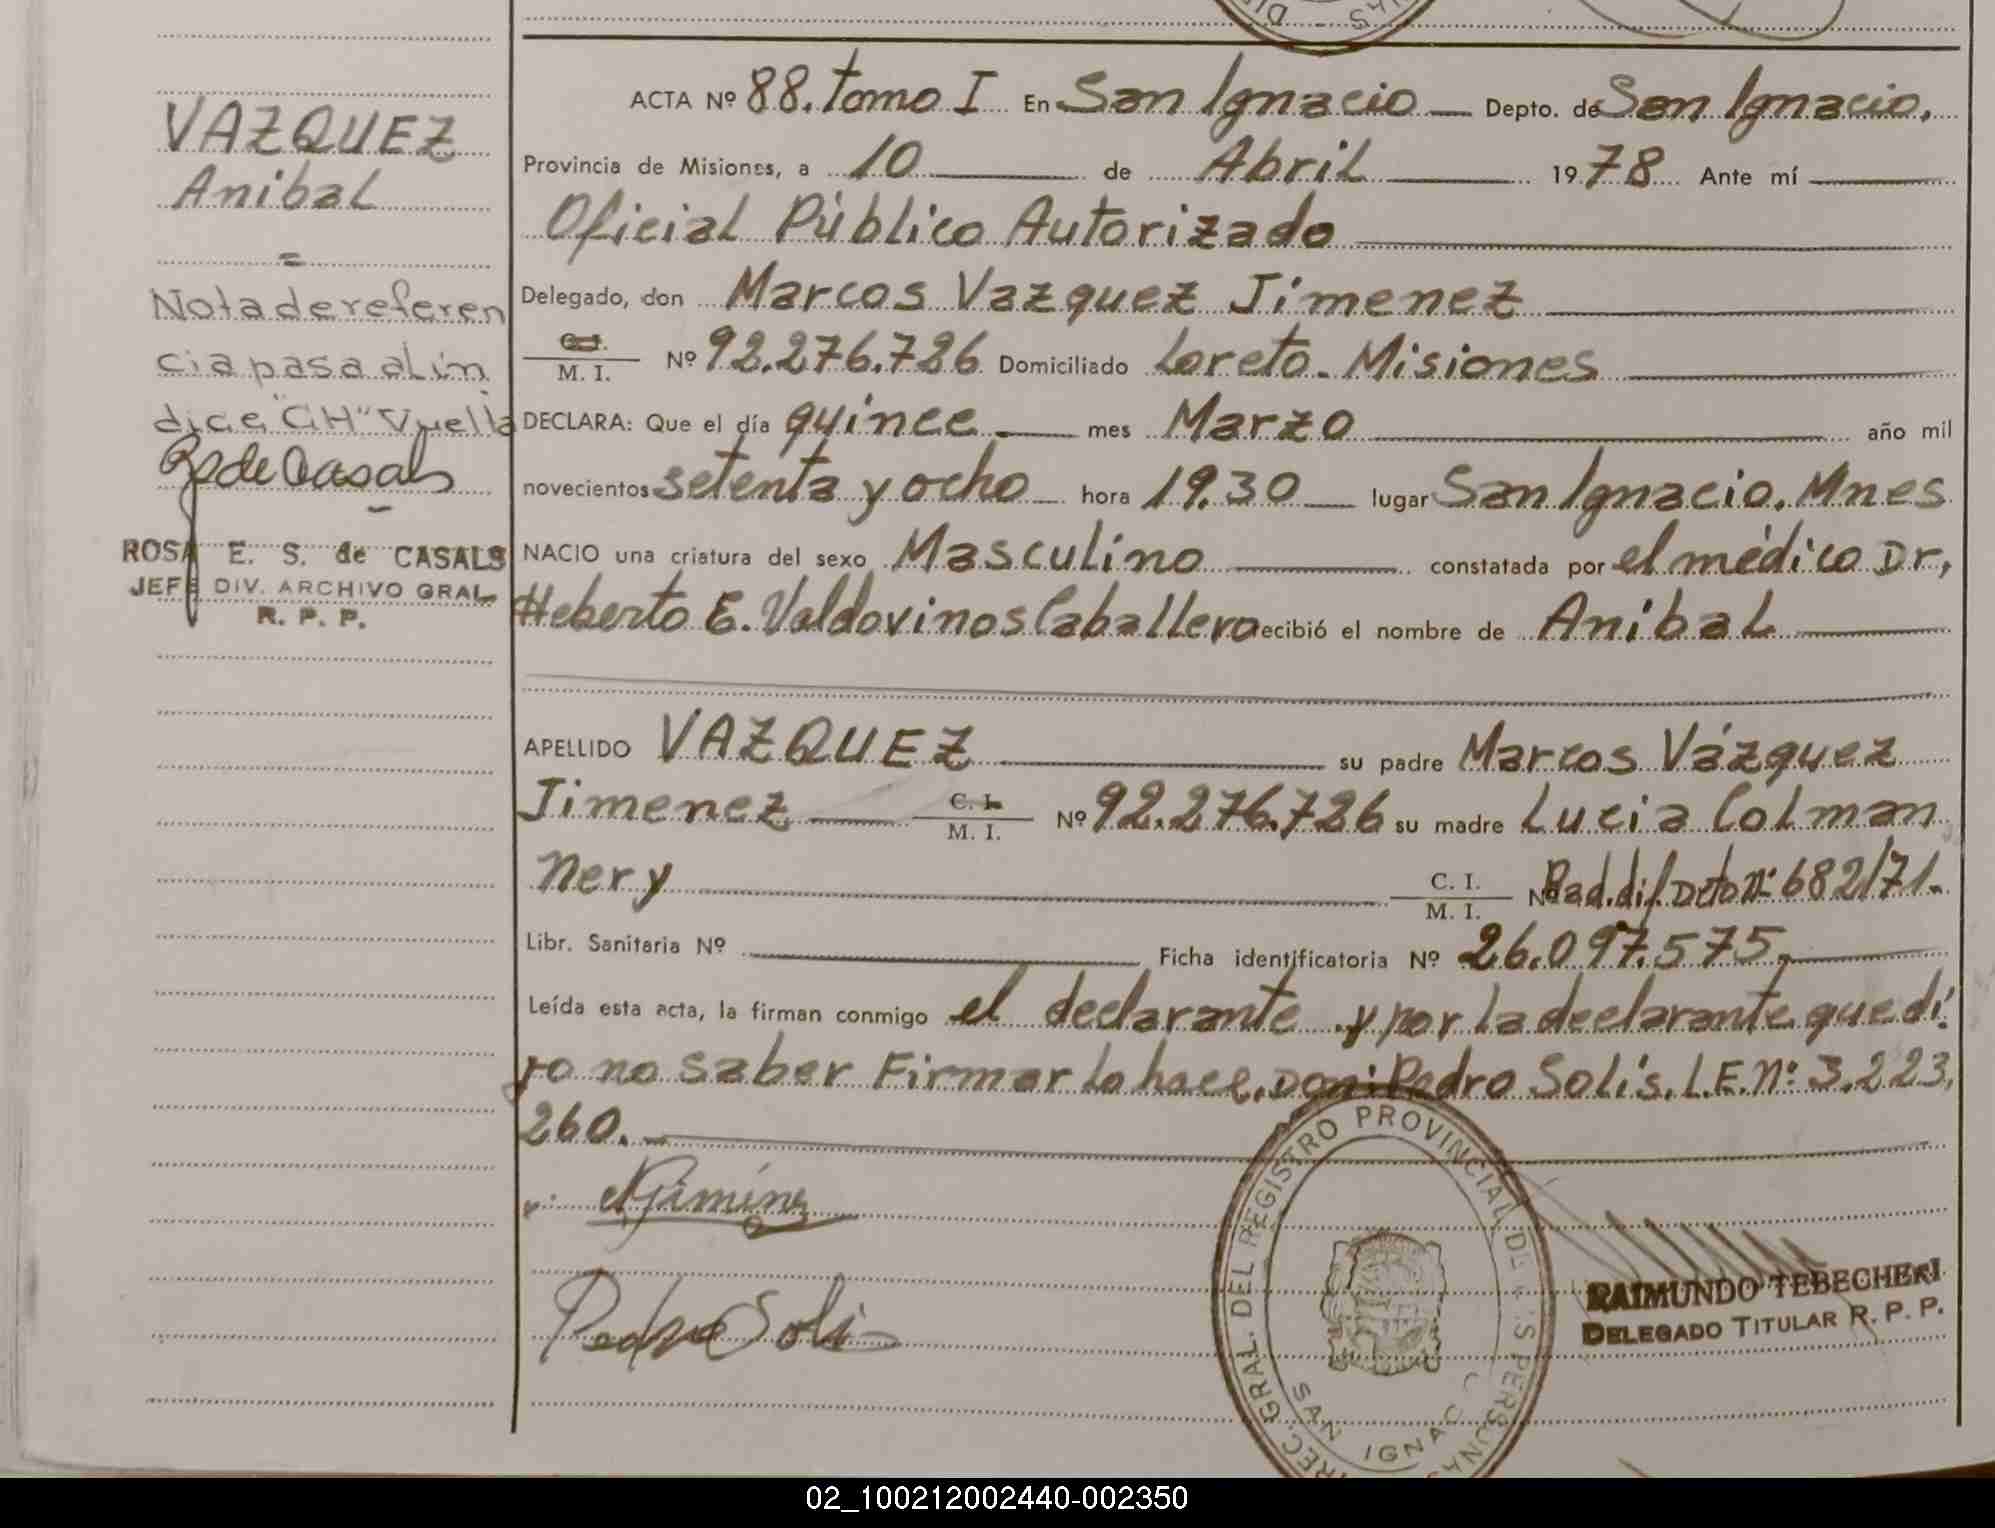 VAZQUEZ
Anibal
=
Nota de referen
cia pasa al ín
dice "CH" Vuelta
R de Casals
ROSA E. S. de CASALS
JEFE DIV. ARCHIVO GRAL
R. P. P.
ACTA Nº 88. tomo I En San Ignacio — Depto. de San Ignacio.
Provincia de Misiones, a 10 de Abril 1978 Ante mí
Oficial Público Autorizado
Delegado, don Marcos Vazquez Jimenez
C. I. / M. I. Nº 92.276.726 Domiciliado Loreto. Misiones
DECLARA: Que el día quince mes Marzo año mil
novecientos setenta y ocho hora 19.30 lugar San Ignacio. Mnes
NACIO una criatura del sexo Masculino constatada por el médico Dr,
Heberto E. Valdovinos Caballero recibió el nombre de Anibal
APELLIDO VAZQUEZ su padre Marcos Vázquez
Jimenez C. I. / M. I. Nº 92.276.726 su madre Lucia Colman
Nery C. I. / M. I. Nº Rad. dif. Dcto Nº 682/71.
Libr. Sanitaria Nº Ficha identificatoria Nº 26.097.575.
Leída esta acta, la firman conmigo el declarante y por la declarante que di
jo no saber Firmar lo hace, Don: Pedro Solis. L.E. Nº 3.223.
260.
Pedro Solis
DIREC. GRAL. DEL REGISTRO PROVINCIAL DE LAS PERSONAS
SAN IGNACIO
RAIMUNDO TEBECHERI
DELEGADO TITULAR R. P. P.
02_100212002440-002350